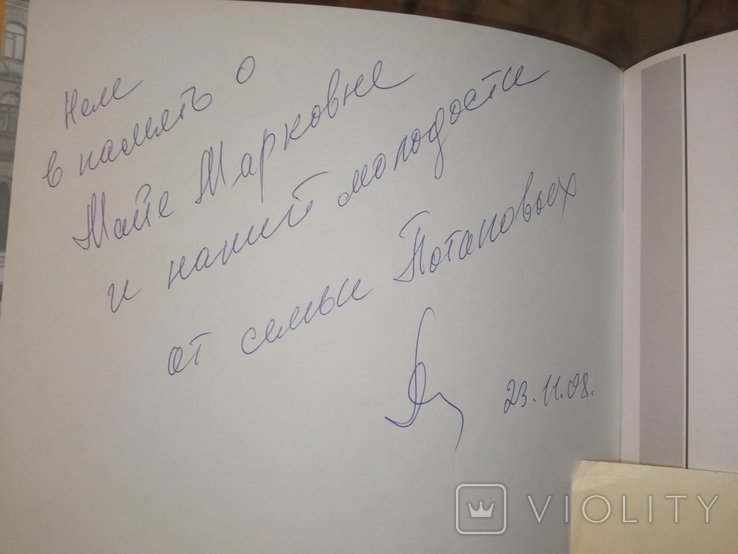 Неле
в память о
Майе Марковне
и нашей молодости
от семьи Потаповых
23.11.08.
VIOLITY